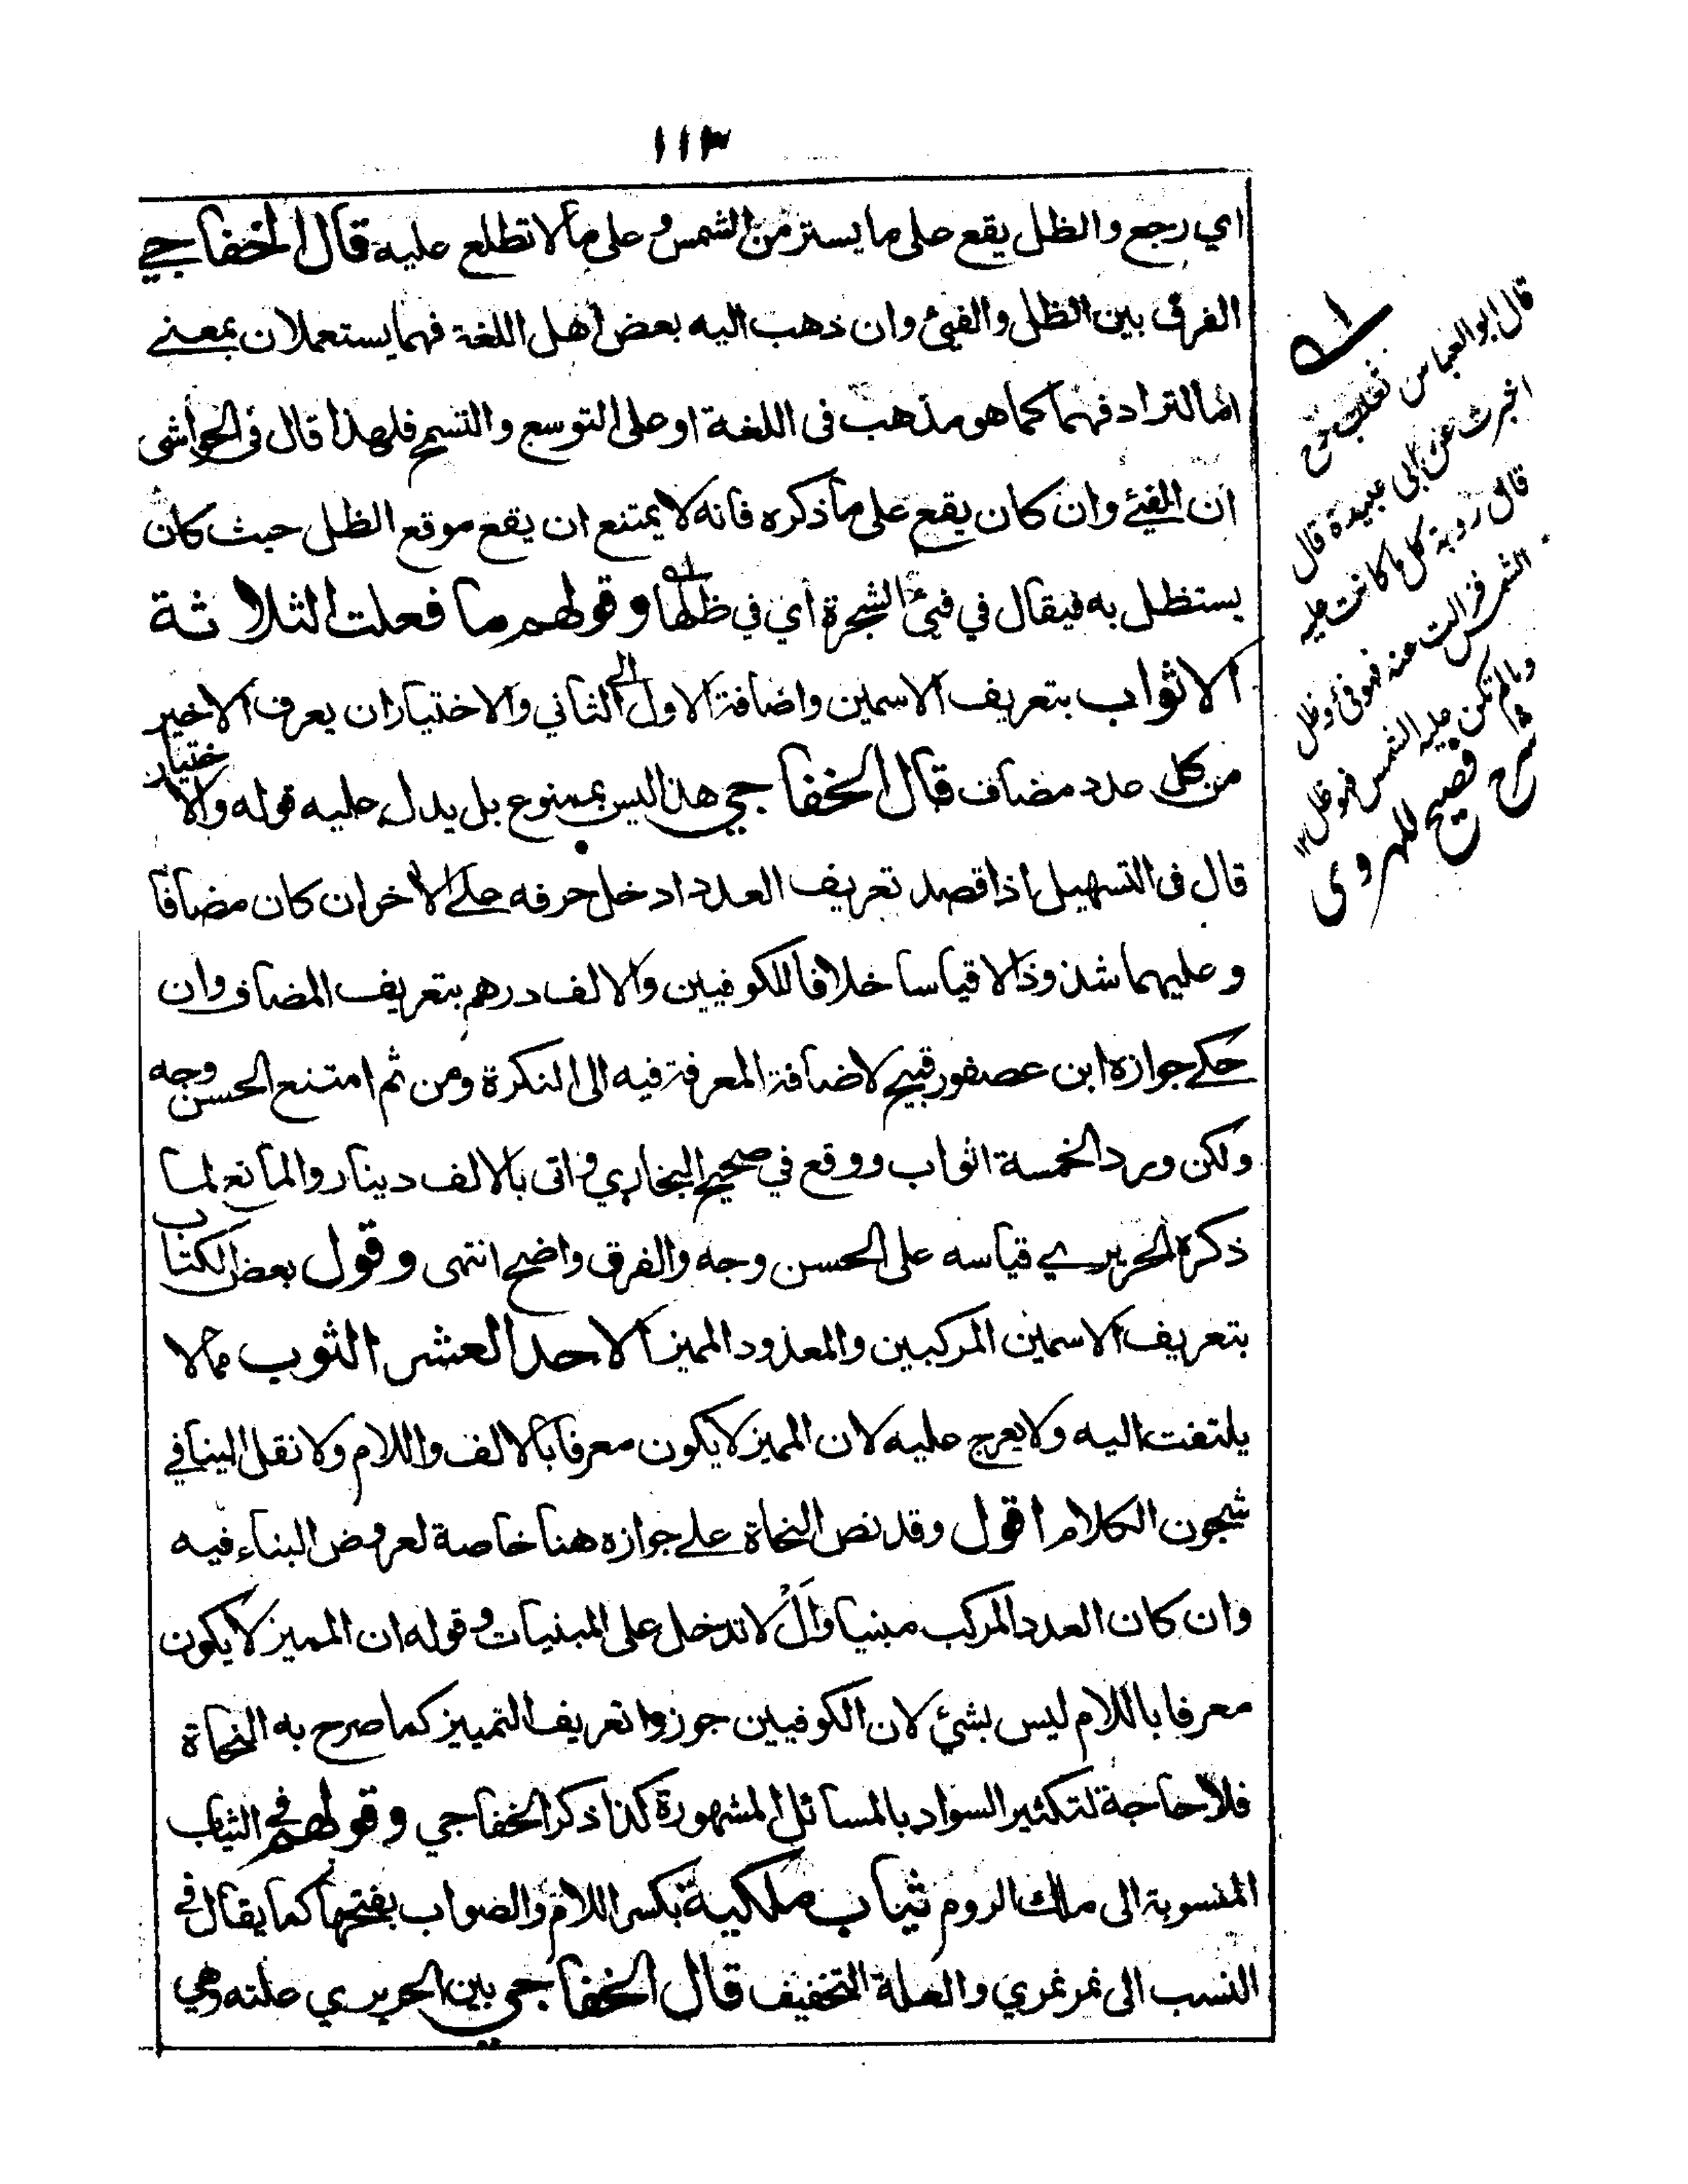 ١١٣
اي رجع والظل يقع على ما يستر من الشمس وعلى ما لا تطلع عليه قال الخفاجي
الفرق بين الظل والفيئ وان ذهب اليه بعض اهل اللغة فهما يستعملان بمعنے
اما الترادفهما كما هو مذهب فى اللغة او على التوسع والتسمح فلهذا قال فى الحواشى
ان الفيئے وان كان يقع على ما ذكره فانه لا يمتنع ان يقع موقع الظل حيث كان
يستظل به فيقال في فيئ الشجرة اي في ظلها وقولهم ما فعلت الثلاثة
الاثواب بتعريف الاسمين واضافة الاول الى الثاني والاختيار ان يعرف الاخير
من كل عدد مضاف قال الخفاجي هذا ليس بممنوع بل يدل عليه قوله والاختيار
قال فى التسهيل اذا قصد تعريف العدد ادخل حرفه علے الاخر ان كان مضافا
وعليهما شذوذا لا قياسا خلافا للكوفيين والالف درهم بتعريف المضاف وان
حكے جوازه ابن عصفور قبيح لاضافة المعرفة فيه الى النكرة ومن ثم امتنع الحسن وجه
ولكن ورد الخمسة اثواب ووقع في صحيح البخاري واتى بالالف دينار والمانع لما
ذكره الحريرے قياسه على الحسن وجه والفرق واضح انتهى وقول بعض الكتاب
بتعريف الاسمين المركبين والمعدود المميز الاحد العشر الثوب مما لا
يلتفت اليه ولا يعرج عليه لان المميز لا يكون معرفا بالالف واللام ولا نقل الينا في
شجون الكلام اقول وقد نص النحاة علے جوازه هنا خاصة لعروض البناء فيه
وان كان العدد المركب مبنيا وَاَلْ لا تدخل على المبنيات وقوله ان المميز لا يكون
معرفا باللام ليس بشئ لان الكوفيين جوزوا تعريف التمييز كما صرح به النحاة
فلا حاجة لتكثير السواد بالمسائل المشهورة كذا ذكر الخفاجي وقولهم في الثياب
المنسوبة الى ملك الروم ثياب ملكية بكسر اللام والصواب بفتحها كما يقال في
النسب الى نمر نمري والعلة التخفيف قال الخفاجي بين الحريري علته وهي
قال ابو العباس ثعلب
اخبرت عن ابى عبيدة قال
قال روبة كل ما كانت عليه
الشمس فزالت عنه فهو فئ وظل
وما لم تكن عليه الشمس فهو ظل ١٢
شرح فصيح للهروى